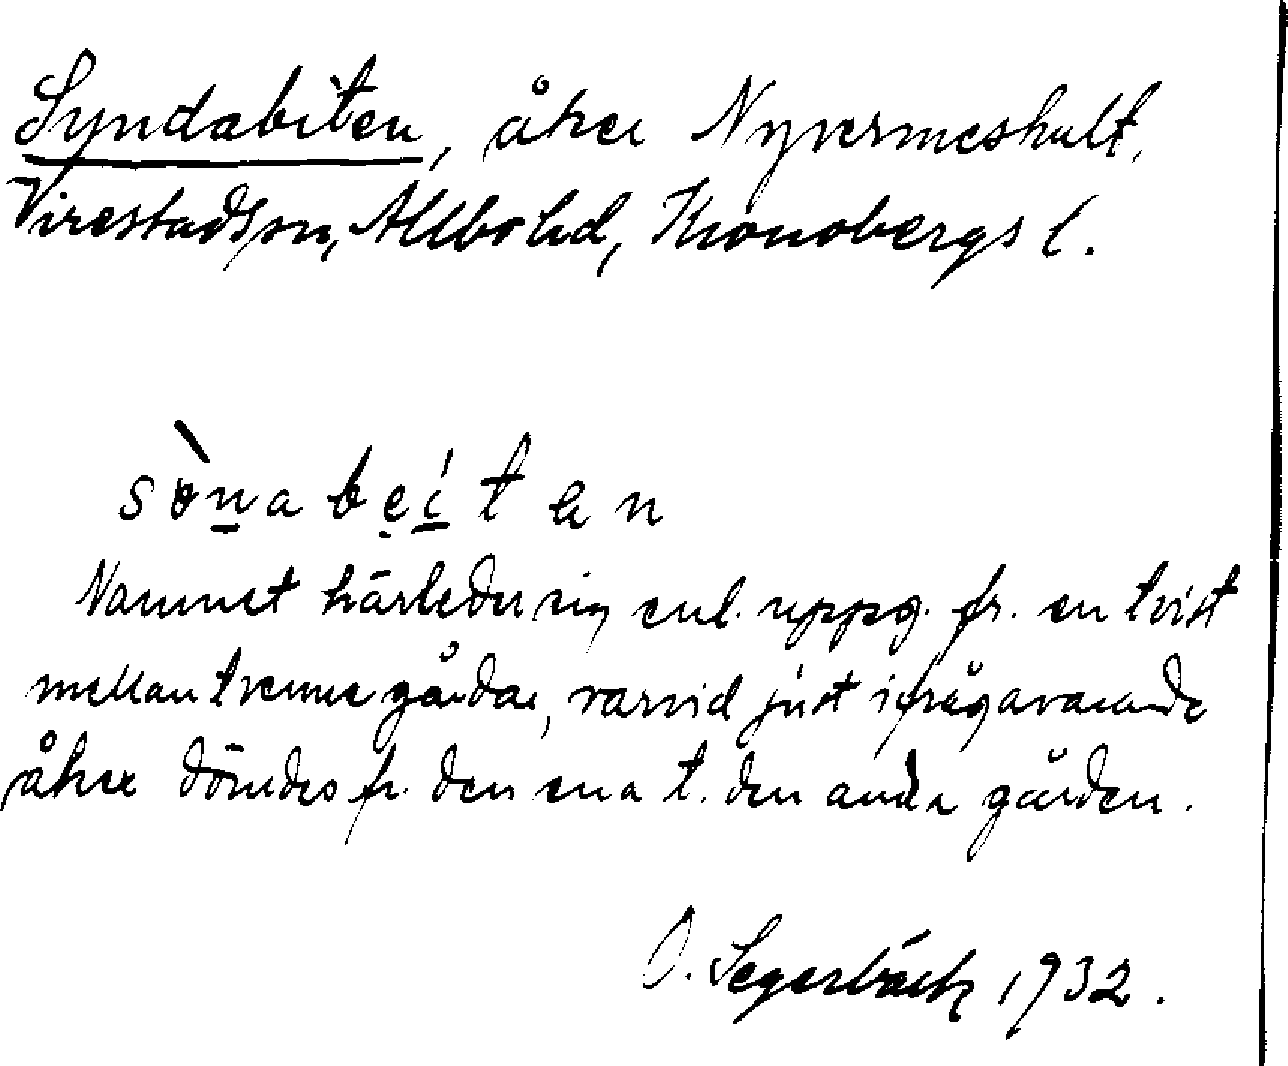 Syndabiten, åker Nyvermeshult,
Virestads sn, Allbo hd, Kronobergs l.
sònabeitan
Namnet härleder sig enl. uppg. fr. en tvist
mellan tvenne gårdar, varvid just ifrågavarande
åker dömdes fr. den ena t. den andra gården.
O. Segerbäck 1932.